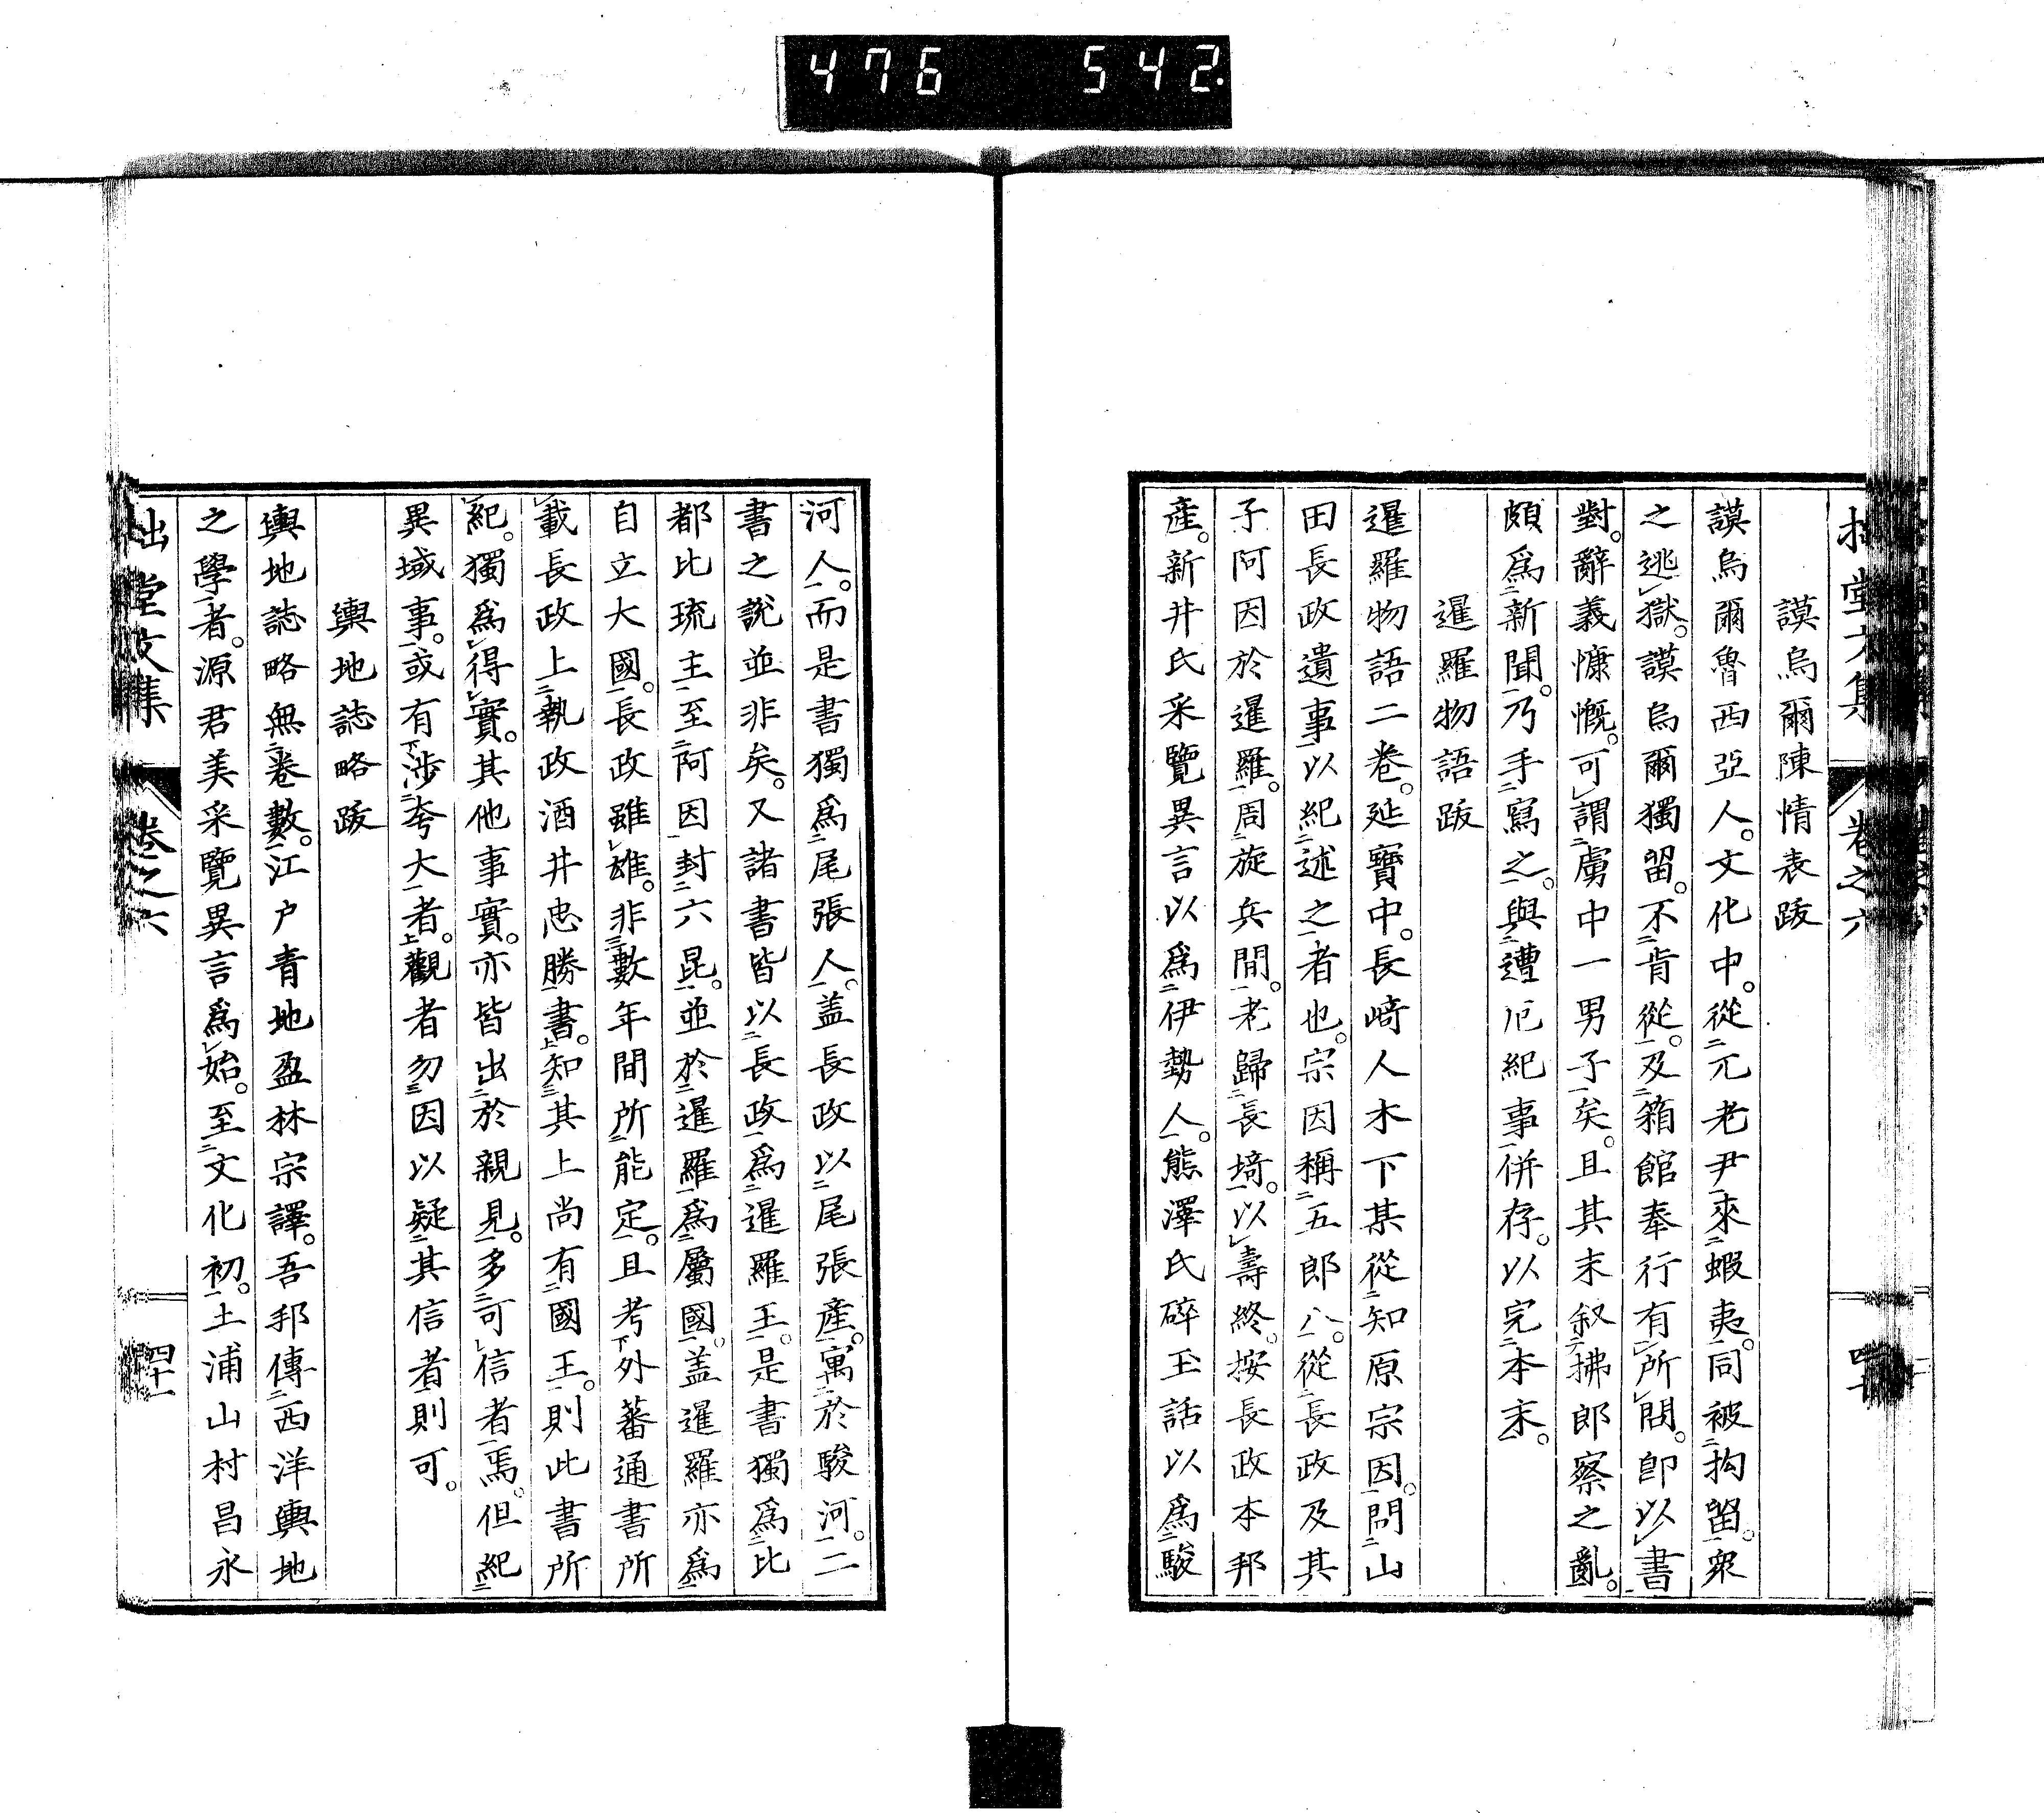 476 542.
謨烏爾陳情表跋
謨烏爾魯西亞人。文化中。從兀老尹來蝦夷。同被拘留。衆
之逃獄。謨烏爾獨留。不肯從。及箱館奉行有所問。卽以書
對。辭義慷慨。可謂虜中一男子矣。且其末叙拂郎察之亂。
頗爲新聞。乃手寫之。與遭厄紀事併存。以完本末。
暹羅物語跋
暹羅物語二卷。延寶中。長崎人木下某從知原宗因。問山
田長政遺事以紀述之者也。宗因稱五郎八。從長政及其
子阿因於暹羅。周旋兵間。老歸長埼。以壽終。按長政本邦
產。新井氏采覽異言以爲伊勢人。熊澤氏碎玉話以爲駿
河人。而是書獨爲尾張人。盖長政以尾張產。寓於駿河。二
書之說並非矣。又諸書皆以長政爲暹羅王。是書獨爲比
都比琉主。至阿因封六昆。並於暹羅爲屬國。盖暹羅亦爲
自立大國。長政雖雄。非數年間所能定。且考外蕃通書所
載長政上執政酒井忠勝書。知其上尚有國王。則此書所
紀。獨爲得實。其他事實。亦皆出於親見。多可信者焉。但紀
異域事。或有涉夸大者。觀者勿因以疑其信者則可。
輿地誌略跋
輿地誌略無卷數。江戶青地盈林宗譯。吾邦傳西洋輿地
之學者。源君美采覽異言爲始。至文化初。土浦山村昌永
拙堂文集 卷之六 四十一